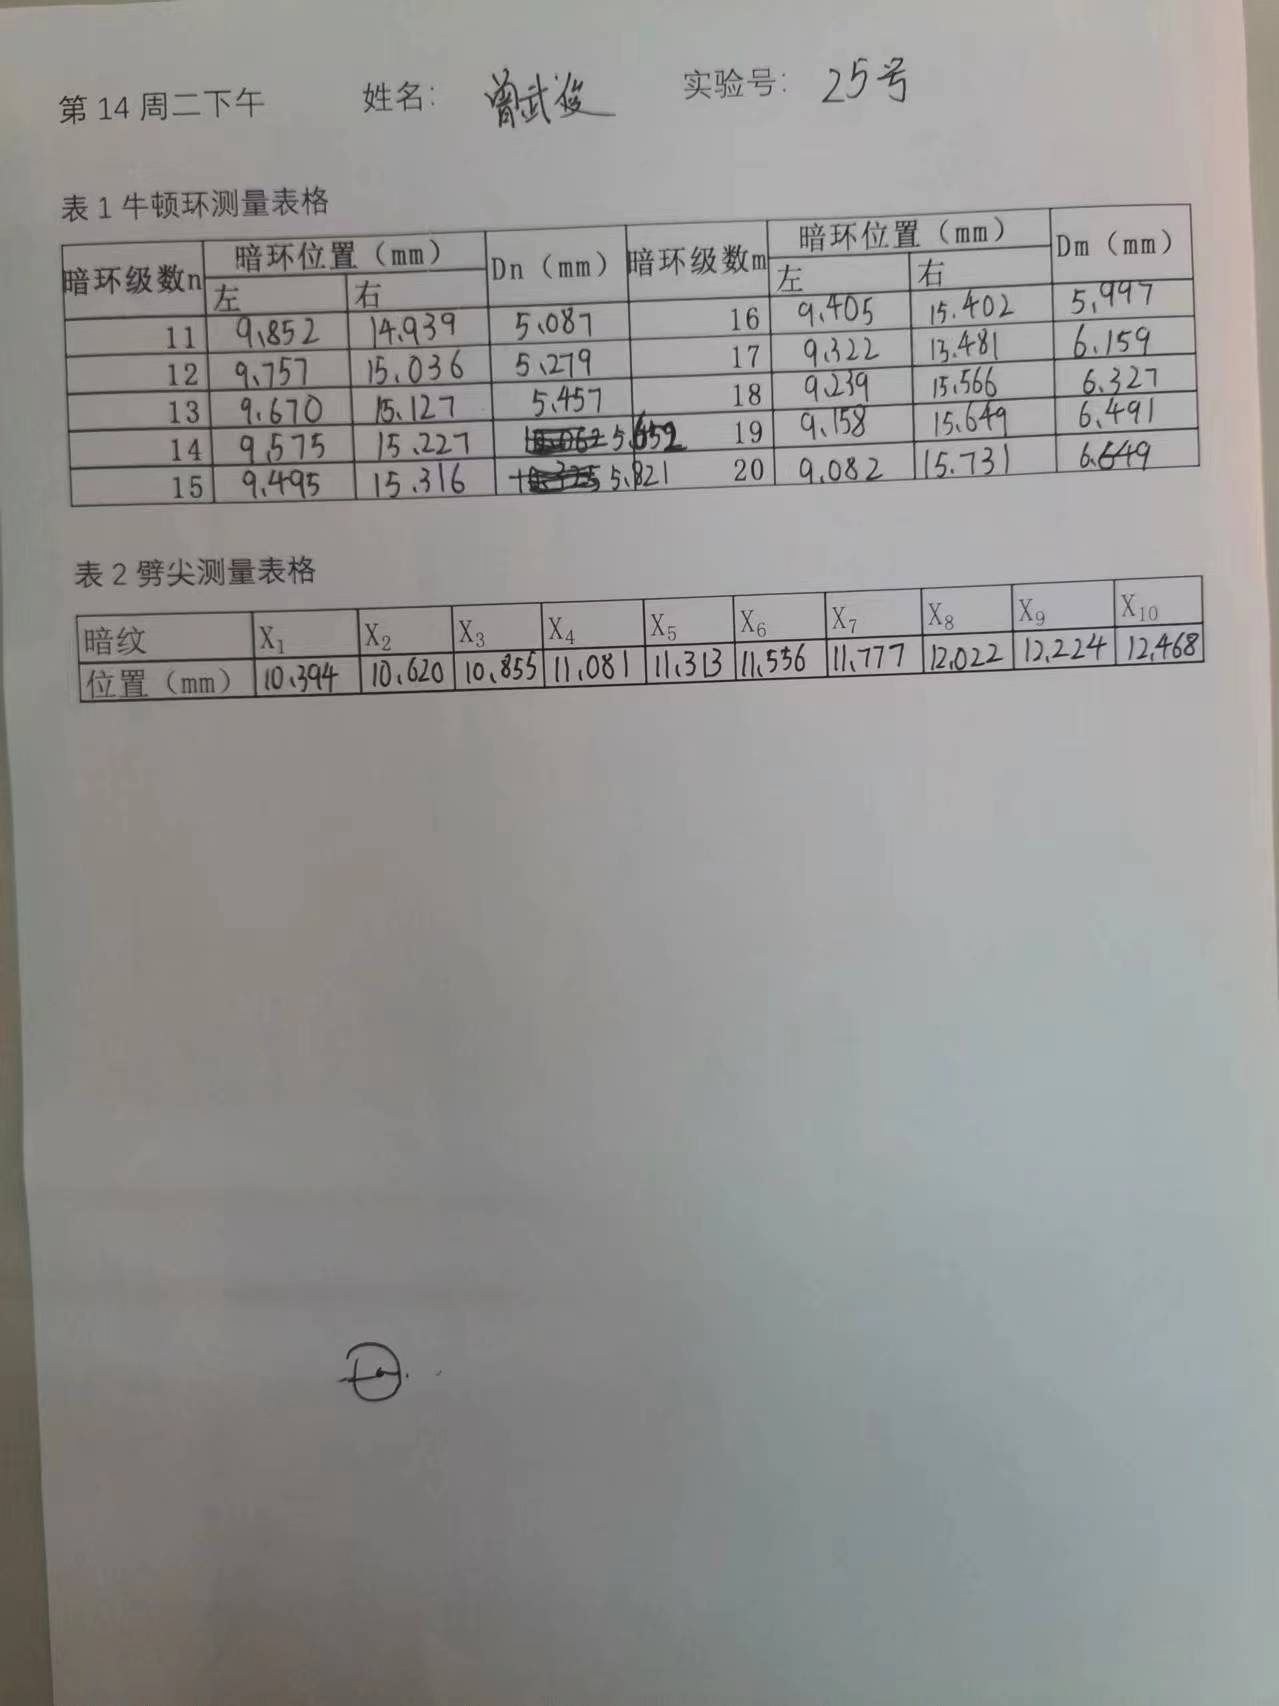 第 14 周二下午 姓名: 曾武俊 实验号: 25号
表 1 牛顿环测量表格
暗环级数n 暗环位置（mm） Dn（mm） 暗环级数m 暗环位置（mm） Dm（mm）
左 右 左 右
11 9.852 14.939 5.087 16 9.405 15.402 5.997
12 9.757 15.036 5.279 17 9.322 15.481 6.159
13 9.670 15.127 5.457 18 9.239 15.566 6.327
14 9.575 15.227 5.652 19 9.158 15.649 6.491
15 9.495 15.316 5.821 20 9.082 15.731 6.649
表 2 劈尖测量表格
暗纹 X₁ X₂ X₃ X₄ X₅ X₆ X₇ X₈ X₉ X₁₀
位置（mm） 10.394 10.620 10.855 11.081 11.313 11.556 11.777 12.022 12.224 12.468